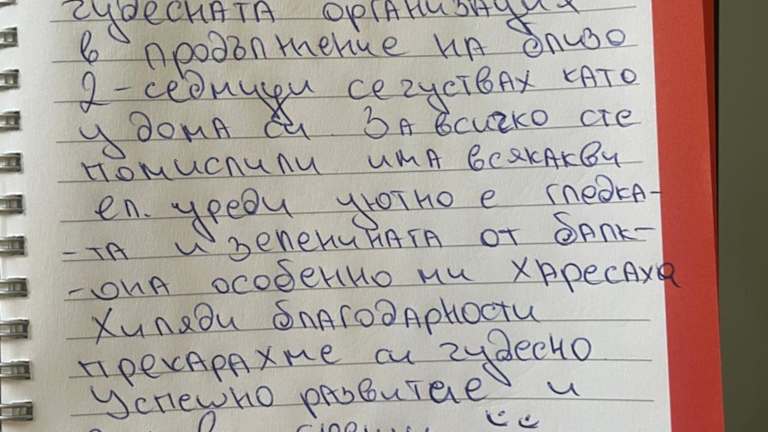 чудесната организация
в продължение на близо
2-седмици се чуствах като
у дома си. За всичко сте
помислили има всякакви
ел. уреди уютно е гледка-
-та и зеленината от балк-
-она особенно ми харесаха
Хиляди благодарности
прекарахме си чудесно
Успешно развитие и